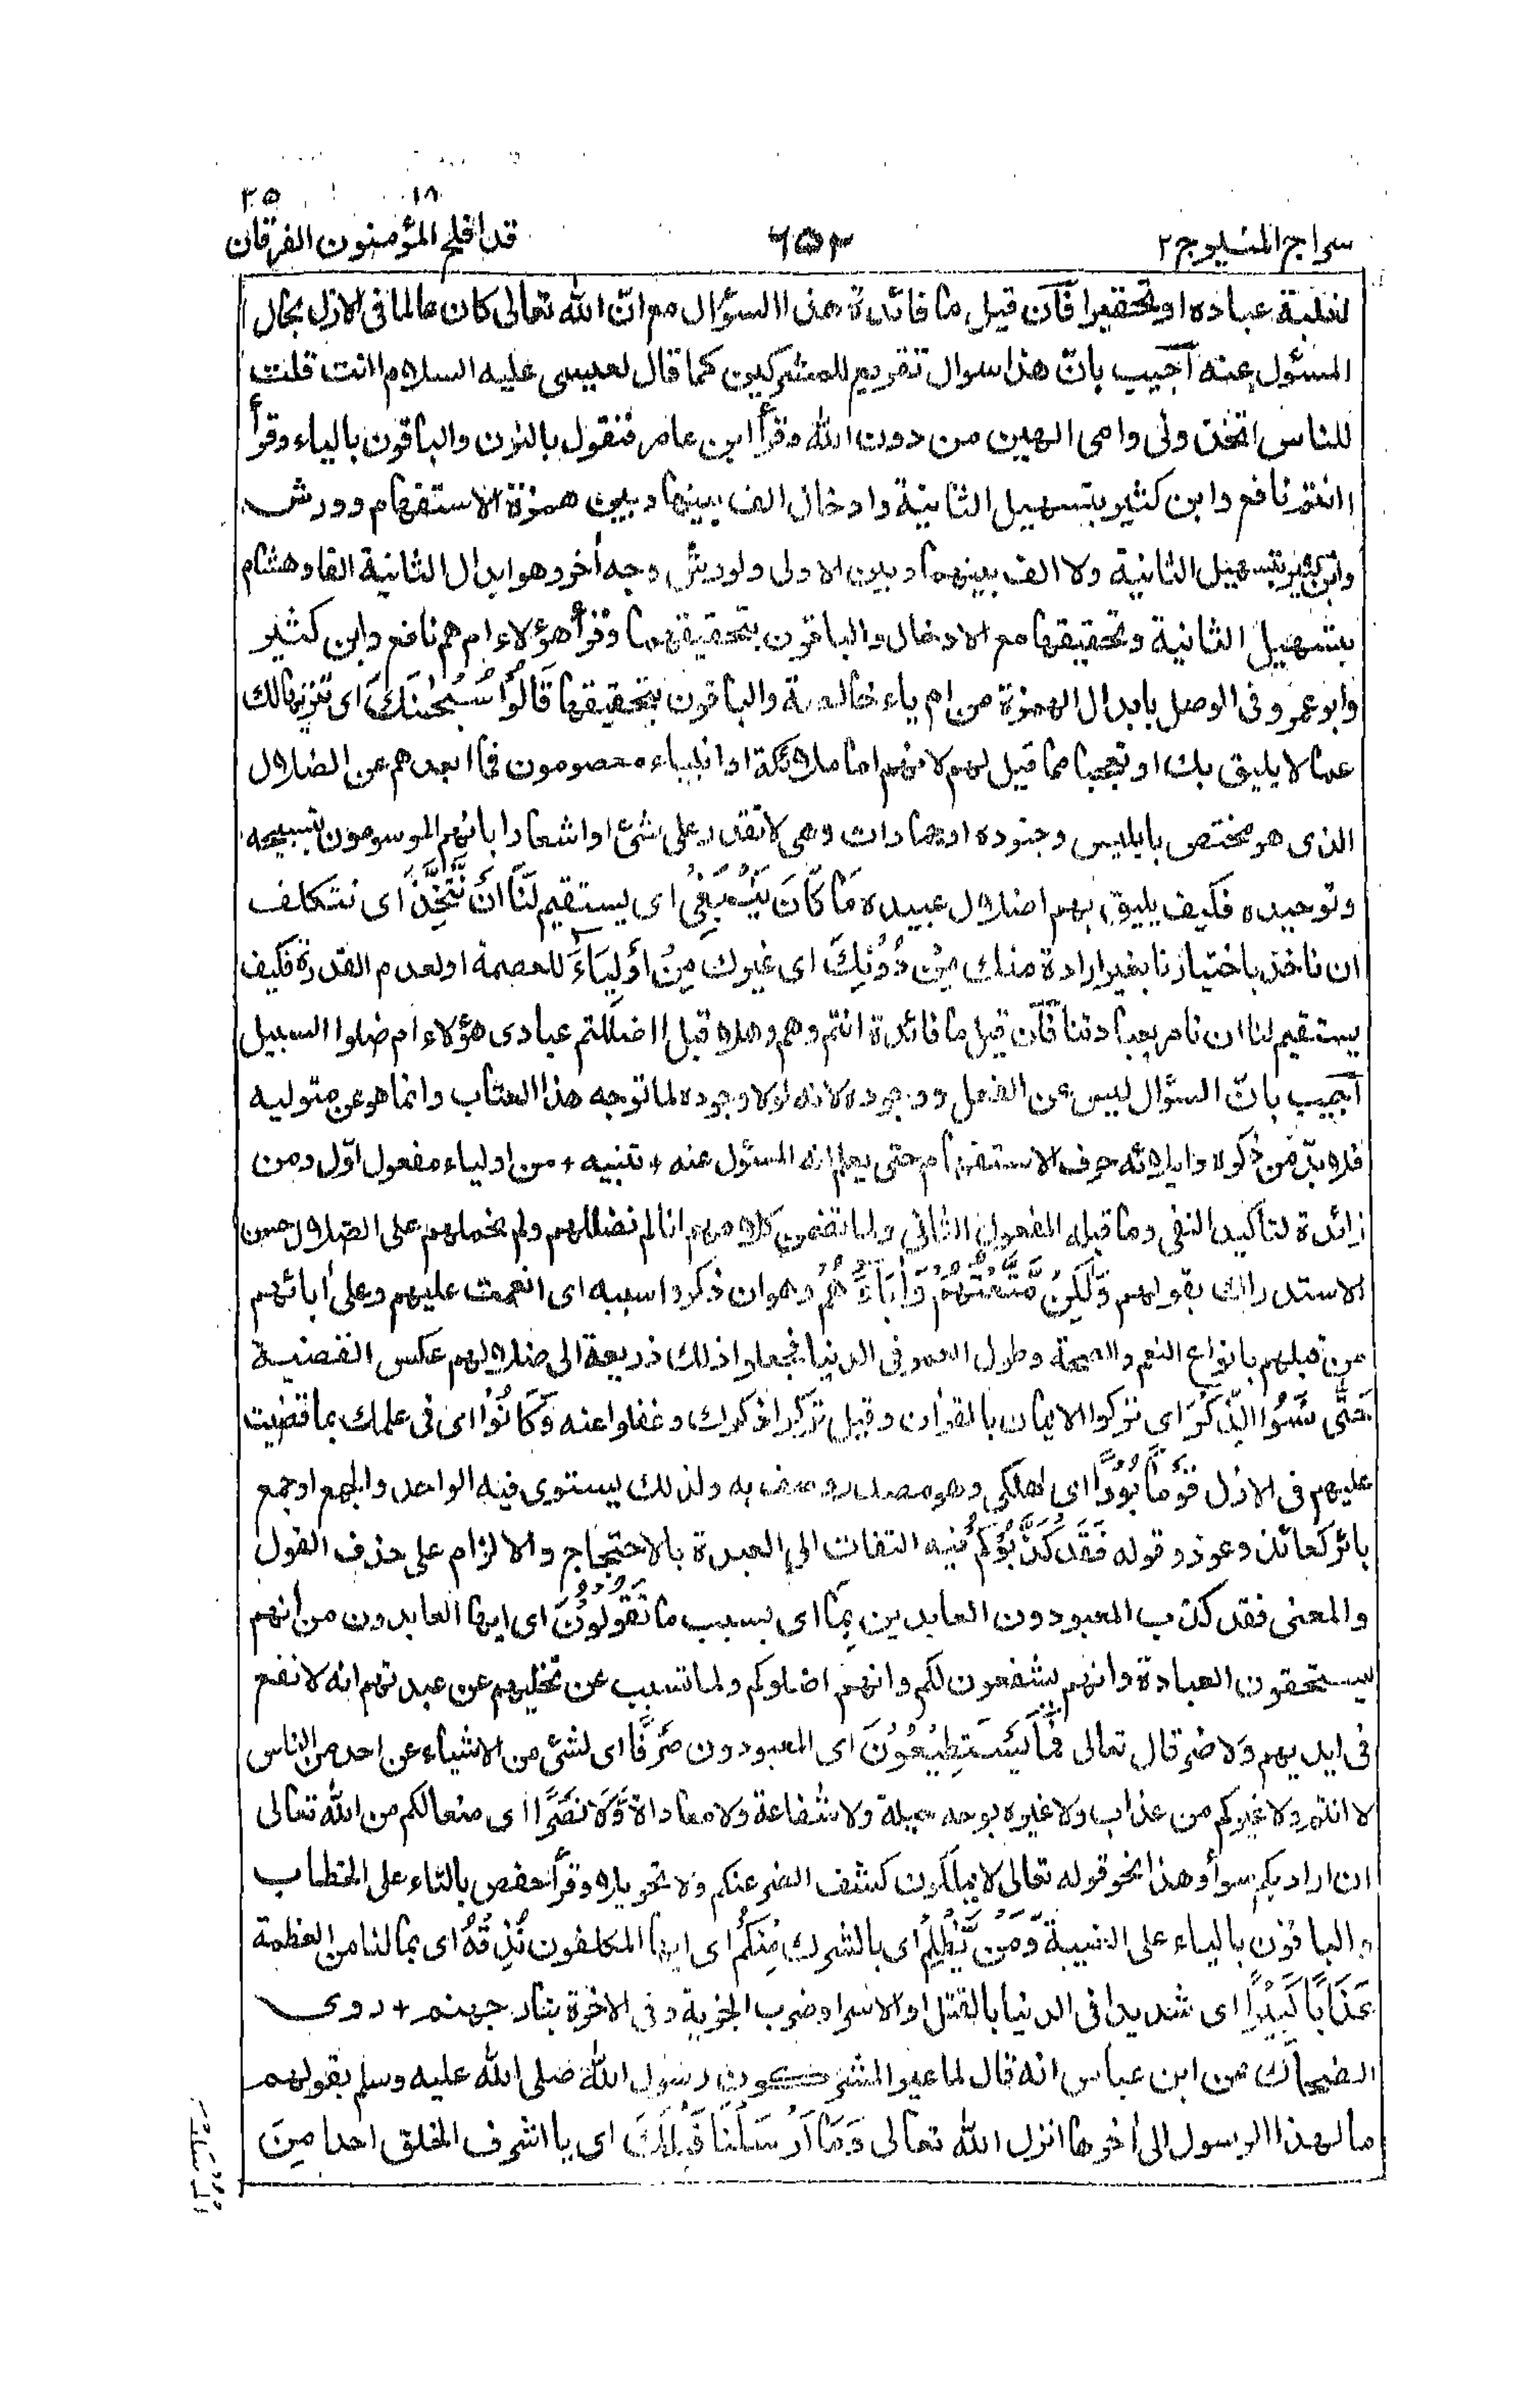 ١٨ ٢٥
سراج المنير ج٢ ٦٥٢ قد افلح المؤمنون الفرقان
لغلبة عباده او تحقيرا فَاَن قيل ما فائدة هذا السؤال مع انّ الله تعالى كان عالما فى الازل بحال
المسؤل عنه اُجيب بانّ هذا سوال تقريع للمشركين كما قال لعيسى عليه السلام اانت قلت
للناس اتخذونى وامى الهين من دون الله وقرأ ابن عامر فنقول بالنون والباقون بالياء وقرأ
اانتم نافع وابن كثير بتسهيل الثانية وادخال الف بينها وبين همزة الاستفهام وورش
وابن كثير بتسهيل الثانية ولا الف بينهما وبين الاولى ولورش وجه أخر وهو ابدال الثانية الفا وهشام
بتسهيل الثانية وتحقيقها مع الادخال والباقون بتحقيقهما وقرأ هؤلاء ام هم نافع وابن كثير
وابو عمرو فى الوصل بابدال الهمزة من ام ياء خالصة والباقون بتحقيقها قَالُوْا سُبْحٰنَكَ اى تنزيها لك
عما لا يليق بك او تعجبا مما قيل لهم لانهم اما ملائكة او انبياء معصومون فما ابعدهم عن الضلال
الذى هو مختص بابليس وجنوده او جمادات وهى لا تقدر على شئ او اشعارا بانهم الموسومون بتسبيحه
وتوحيده فكيف يليق بهم اضلال عبيده مَا كَانَ يَنْۢبَغِىْ اى يستقيم لَنَا اَنْ نَّتَّخِذَ اى نتكلف
ان ناخذ باختيارنا بغير ارادة منك مِنْ دُوْنِكَ اى غيرك مِنْ اَوْلِيَاءَ للعصمة او لعدم القدرة فكيف
يستقيم لنا ان نامر بعبادتنا فَاَن قيل ما فائدة انتم وهم وهلا قيل ااضللتم عبادى هؤلاء ام ضلوا السبيل
اُجيب بانّ السؤال ليس عن الفعل ووجوده لانه لولا وجوده لما توجه هذا العتاب وانما هو عن متوليه
فلا بدّ من ذكره وايلائه حرف الاستفهام حتى يعلم انه المسئول عنه + تنبيه + من اولياء مفعول اوّل ومن
زائدة لتاكيد النفى وما قبله المفعول الثانى ولما تضمن كلامهم انا لم نضللهم ولم نحملهم على الضلال حسن
الاستدراك بقولهم وَلٰكِنْ مَّتَّعْتَهُمْ وَاٰبَاءَهُمْ وهو ان ذكروا سببه اى انعمت عليهم وعلى أبائهم
من قبلهم بانواع النعم والصحة وطول العمر فى الدنيا فجعلوا ذلك ذريعة الى ضلالهم عكس القضية
حَتّٰى نَسُوا الذِّكْرَ اى تركوا الايمان بالقرأن وقيل تركوا ذكرك وغفلوا عنه وَكَانُوْا اى فى علمك بما قضيت
عليهم فى الازل قَوْمًۢا بُوْرًا اى هلكى وهو مصدر وصف به ولذلك يستوى فيه الواحد والجمع او جمع
بائر كعائذ وعوذ وقوله فَقَدْ كَذَّبُوْكُمْ فيه التفات الى العبدة بالاحتجاج والالزام على حذف القول
والمعنى فقد كذب المعبودون العابدين بِمَا اى بسبب ما تَقُوْلُوْنَ اى ايها العابدون من انهم
يستحقون العبادة وانهم يشفعون لكم وانهم اضلوكم ولما تسبب عن تخليهم عن عبدتهم انه لا نفع
فى ايديهم ولا ضر قال تعالى فَمَا يَسْتَطِيْعُوْنَ اى المعبودون صَرْفًا اى لشئ من الاشياء عن احد من الناس
لا انتم ولا غيركم من عذاب ولا غيره بوجه حيلة ولا شفاعة ولا معاداة وَّلَا نَصْرًا اى منعا لكم من الله تعالى
ان اراد بكم سوأ وهذا نحو قوله تعالى لا يملكون كشف الضر عنكم ولا تحويلا وقرأ حفص بالتاء على الخطاب
والباقون بالياء على الغيبة وَمَنْ يَّظْلِمْ اى بالشرك مِّنْكُمْ اى ايها المكلفون نُذِقْهُ اى بما لنا من العظمة
عَذَابًا كَبِيْرًا اى شديدا فى الدنيا بالقتل او الاسر او ضرب الجزية وفى الاخرة بنار جهنم + روى
الضحاك عن ابن عباس انه قال لما عير المشركون رسول الله صلى الله عليه وسلم بقولهم
ما لهذا الرسول الى أخرها انزل الله تعالى وَمَا اَرْسَلْنَا قَبْلَكَ اى يا اشرف الخلق احدا مِنَ